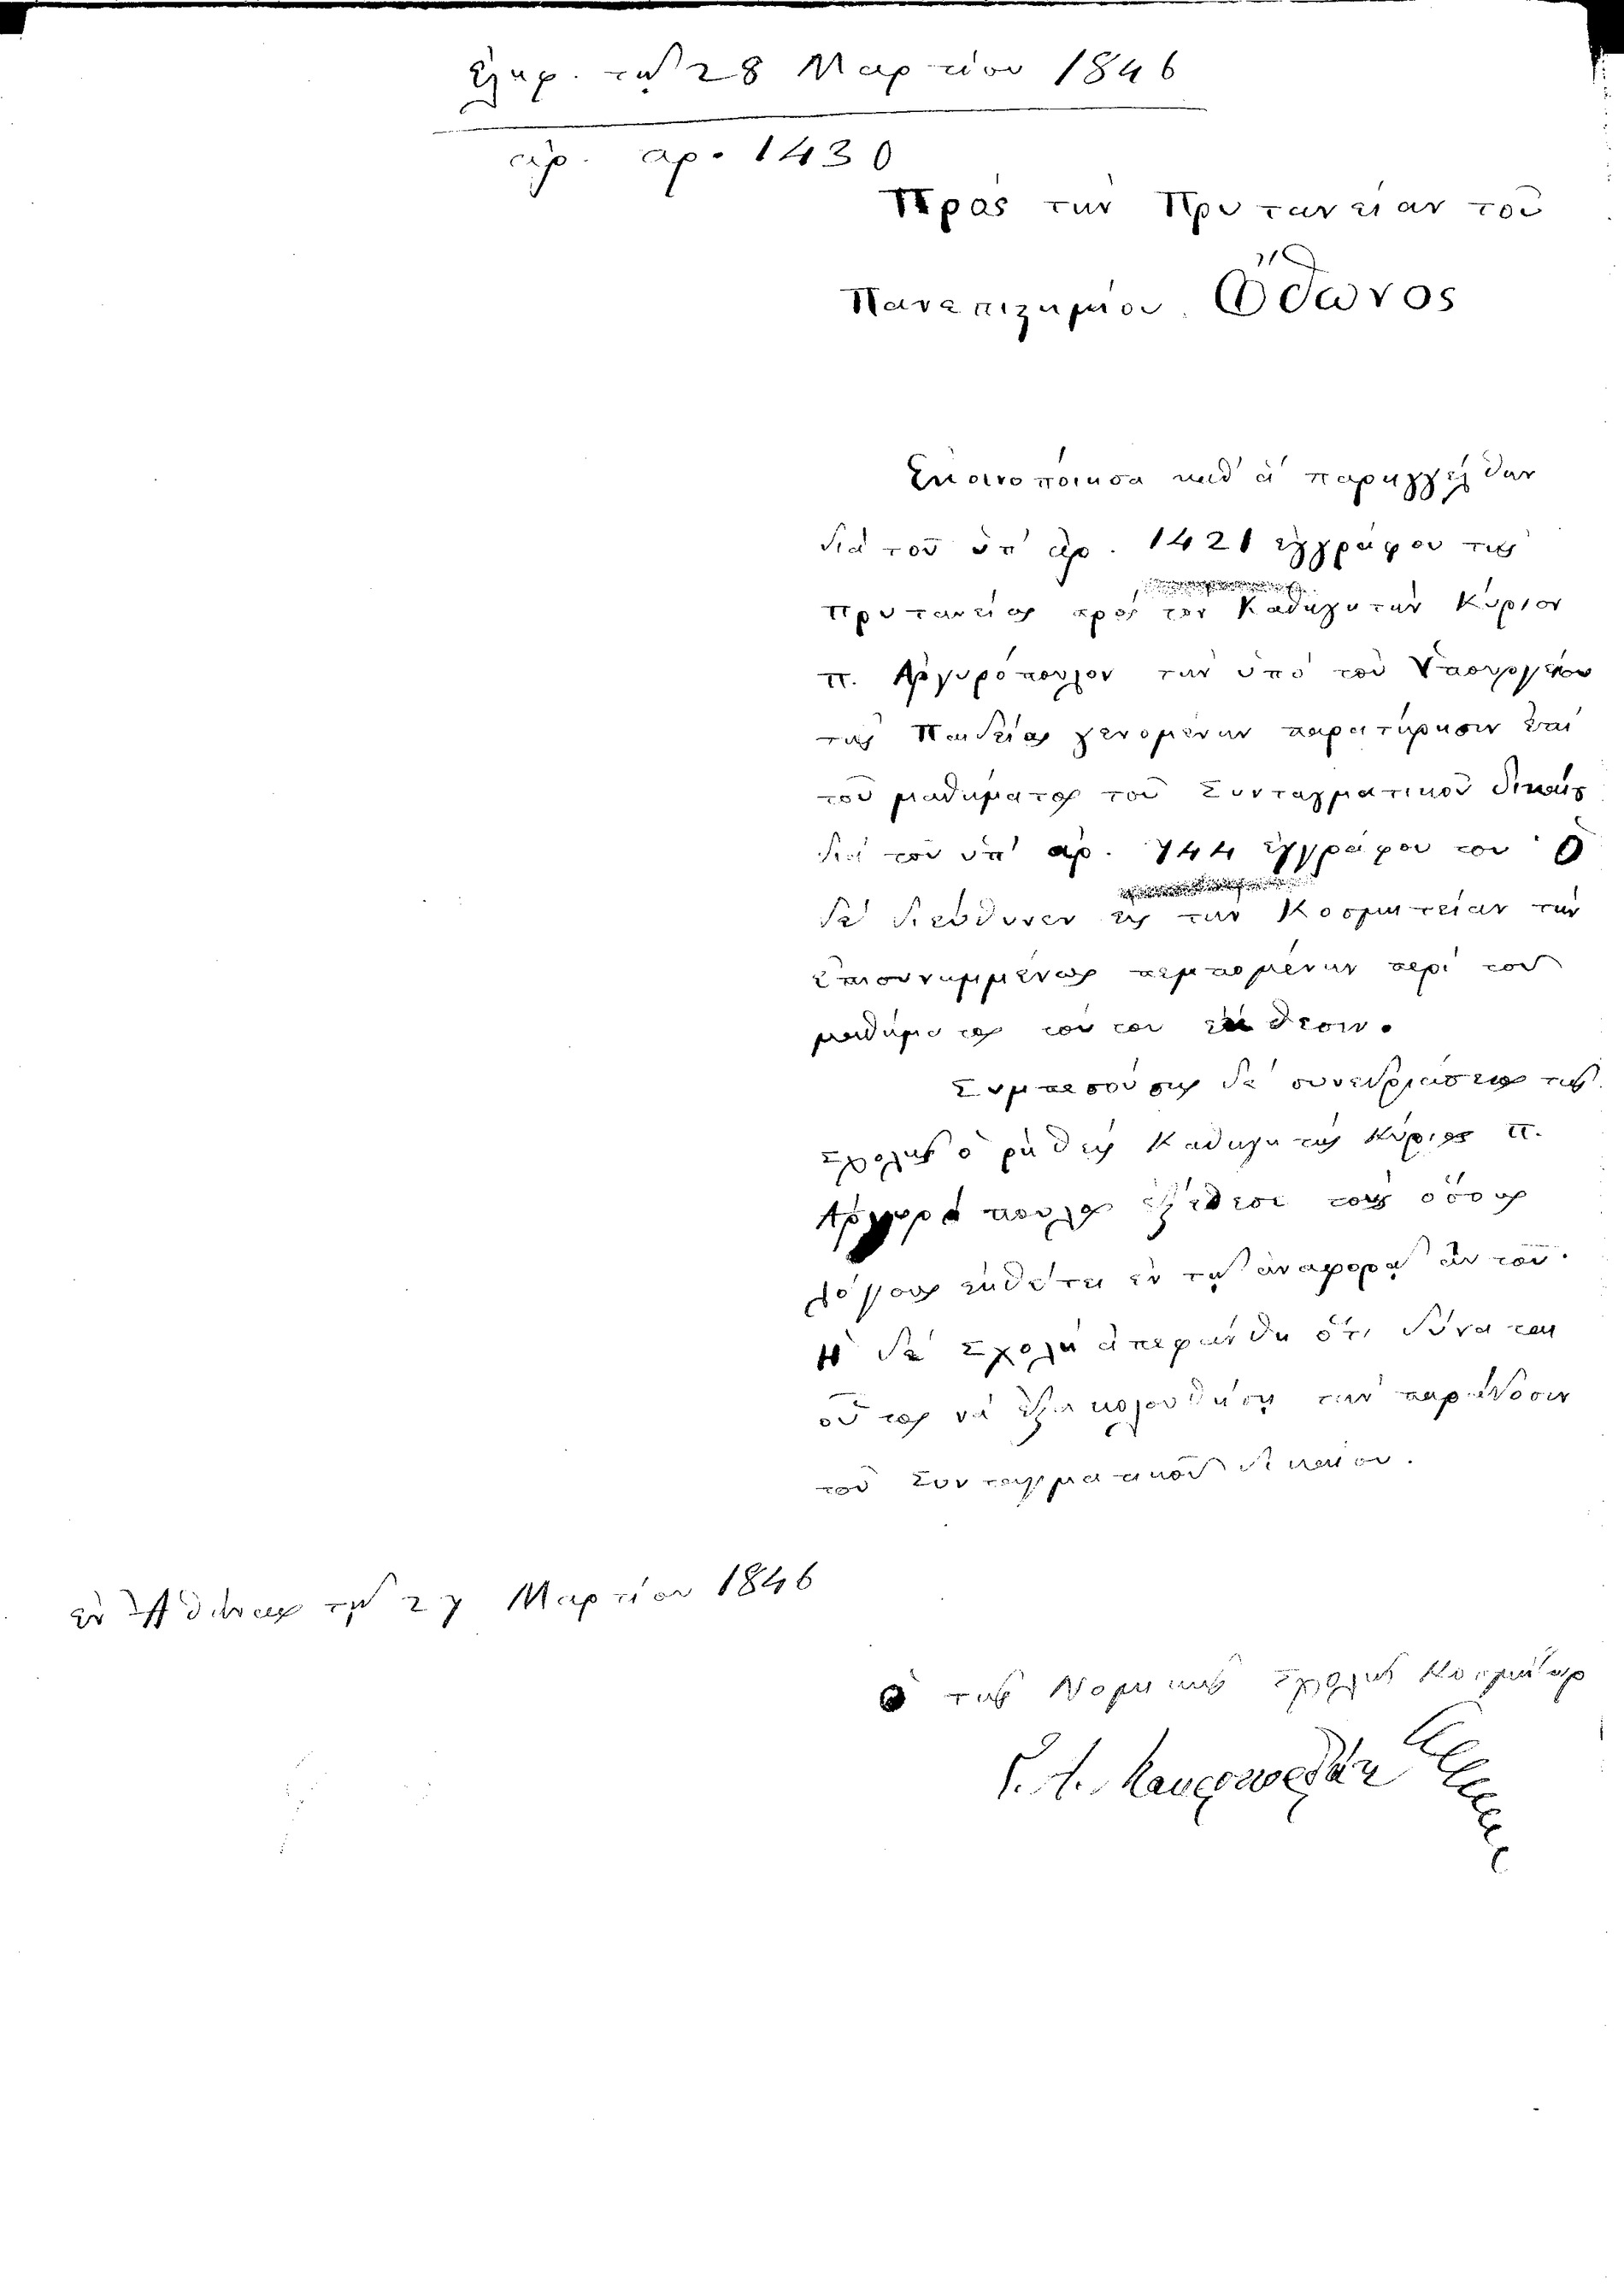 Ἐλήφ. τῇ 28 Μαρτίου 1846
ἀρ. πρ. 1430
Πρὸς τὴν Πρυτανείαν τοῦ
Πανεπιστημίου Ὄθωνος
Ἐκοινοποίησα καθ' ἃ παρηγγέλθην
διὰ τοῦ ὑπ' ἀρ. 1421 ἐγγράφου τῆς
Πρυτανείας πρὸς τὸν Καθηγητὴν Κύριον
Π. Ἀργυρόπουλον τὴν ὑπὸ τοῦ Ὑπουργείου
τῆς Παιδείας γενομένην παρατήρησιν ἐπὶ
τοῦ μαθήματος τοῦ Συνταγματικοῦ δικαίου
διὰ τοῦ ὑπ' ἀρ. 744 ἐγγράφου του Ὁ
δὲ διεύθυνεν εἰς τὴν Κοσμητείαν τὴν
ἐπισυνημμένως πεμπομένην περὶ τοῦ
μαθήματος τούτου ἔκθεσιν.
Συμπεσούσης δὲ συνεδριάσεως τῆς
Σχολῆς ὁ ῥηθεὶς Καθηγητὴς Κύριος Π.
Ἀργυρόπουλος ἐξέθεσε τοὺς ὅσους
λόγους ἐκθέτει ἐν τῇ ἀναφορᾷ αὑτοῦ.
Ἡ δὲ Σχολὴ ἀπεφάνθη ὅτι δύναται
οὗτος νὰ ἐξακολουθήσῃ τὴν παράδοσιν
τοῦ Συνταγματικοῦ δικαίου.
ἐν Ἀθήναις τῇ 27 Μαρτίου 1846
Ὁ τῆς Νομικῆς Σχολῆς Κοσμήτωρ